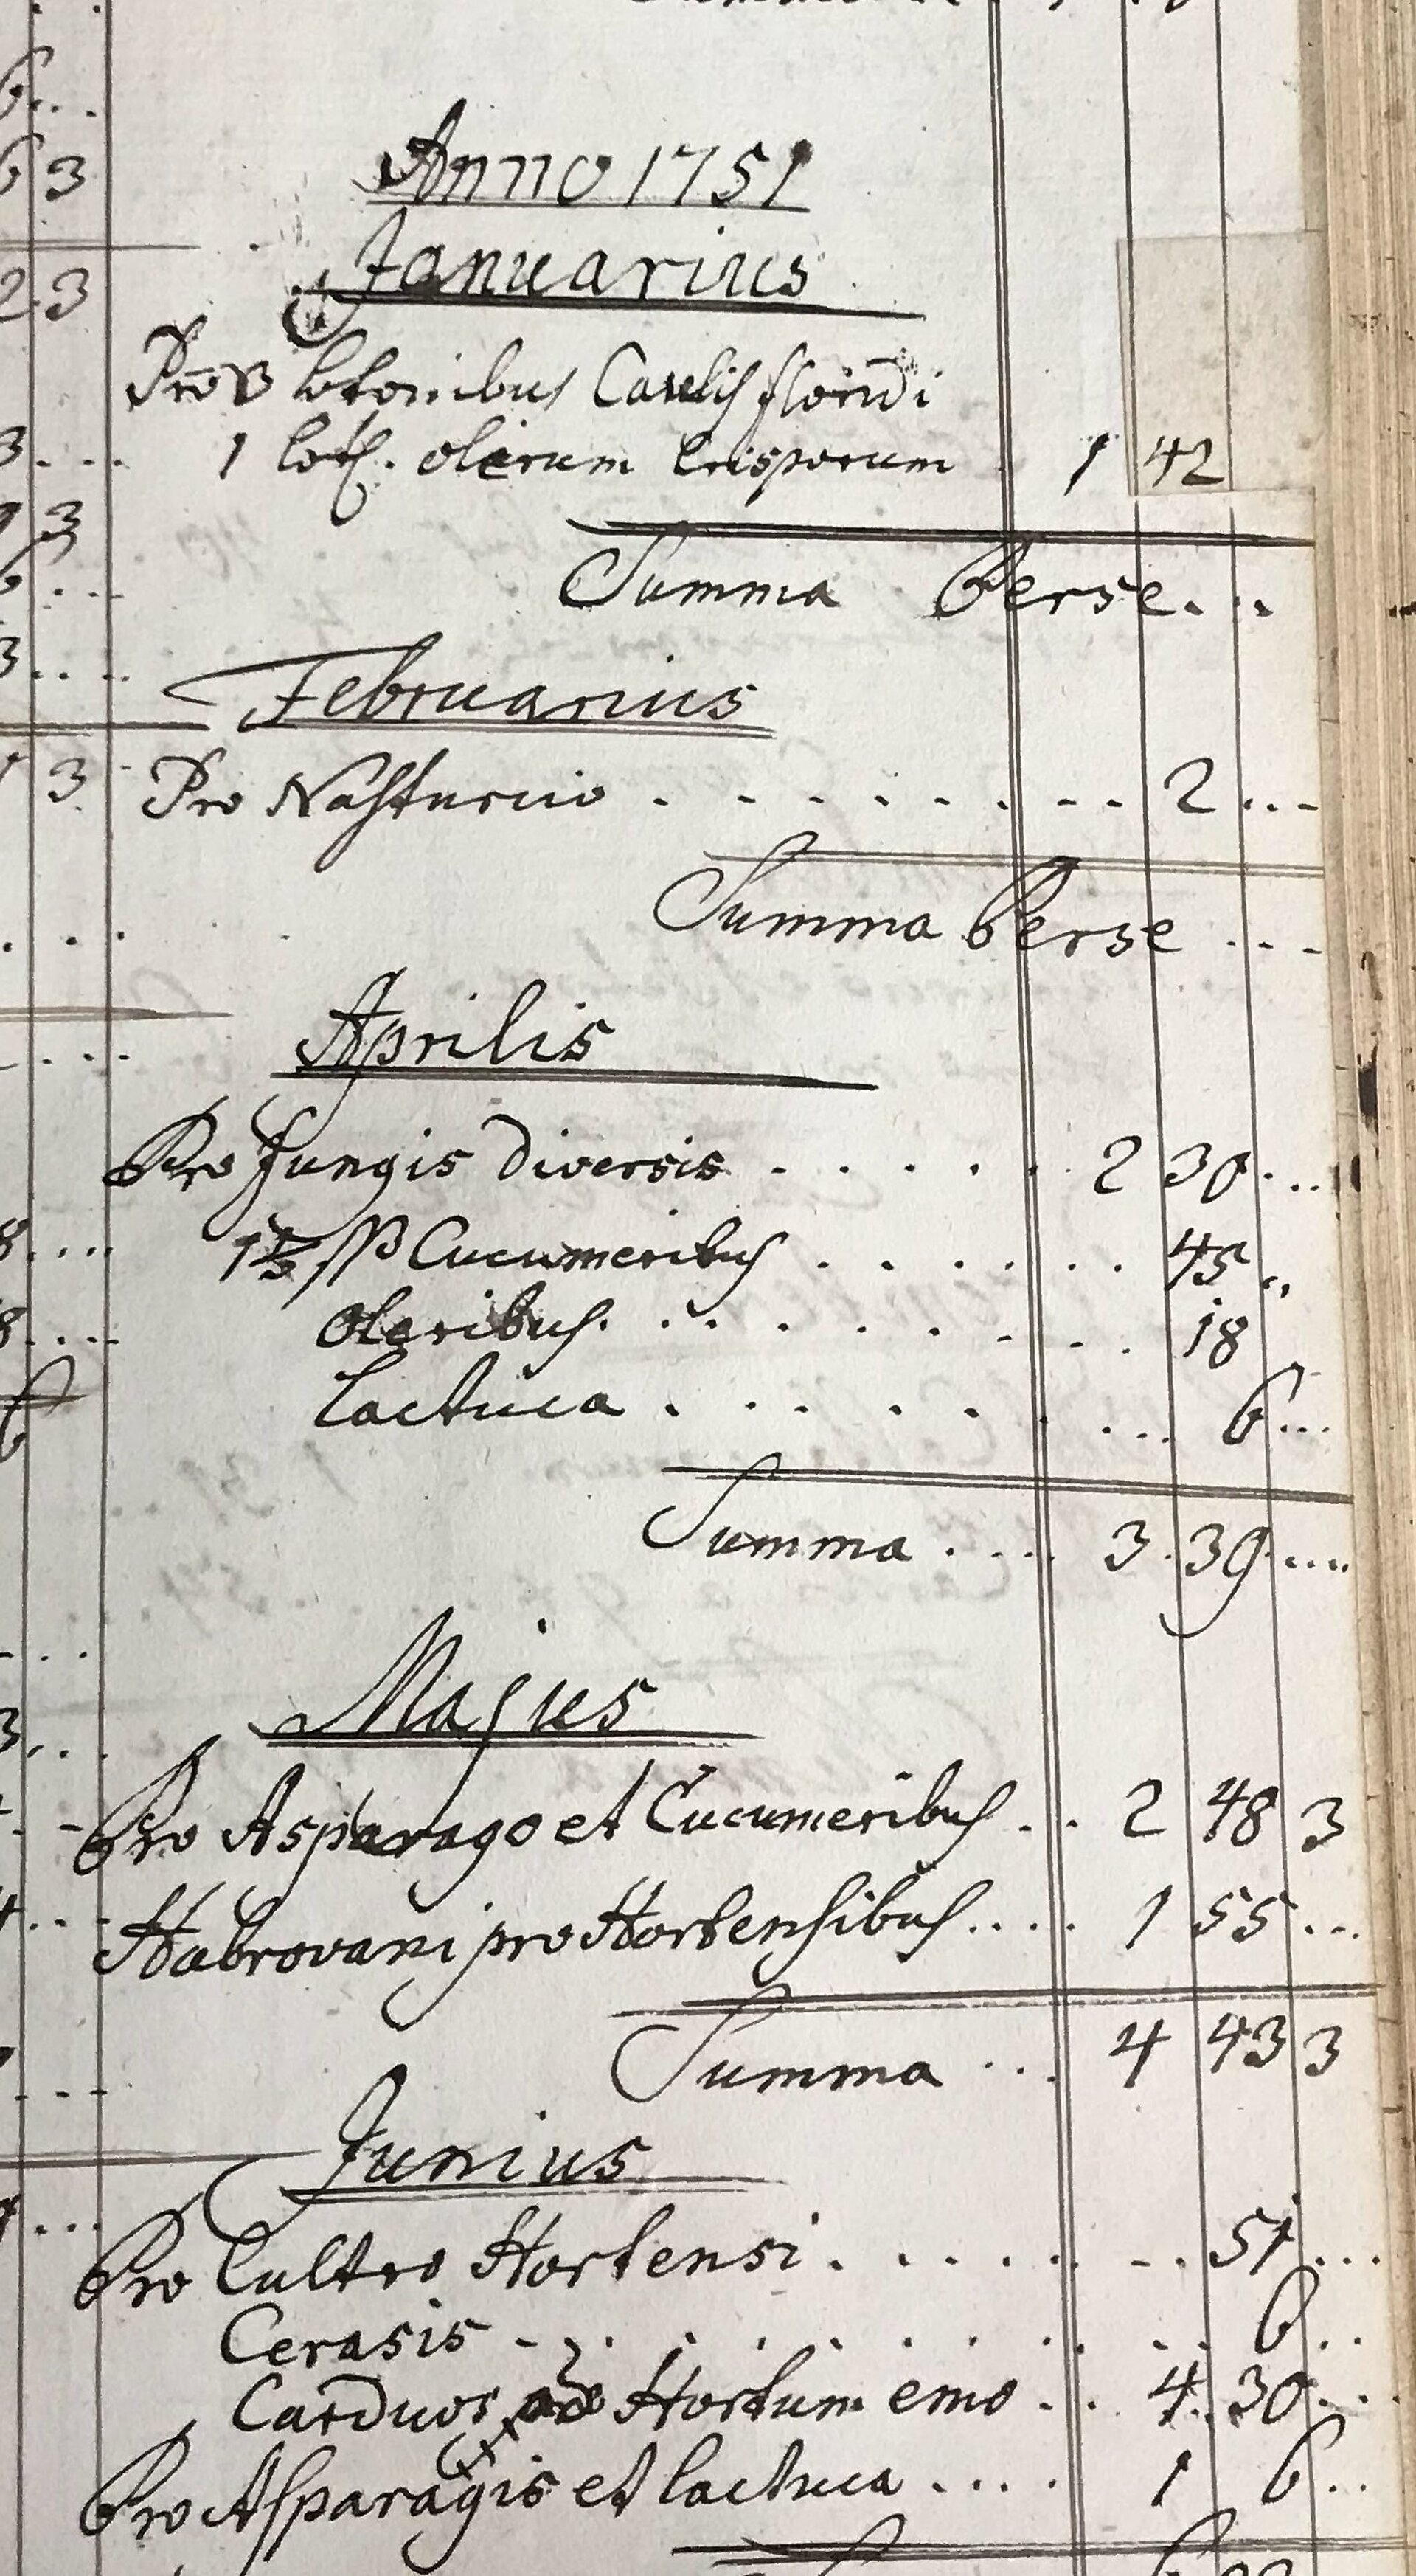 Anno 1751
Januarius
Pro 3 lotonibus Caulis floridi
1 lot. olerum Crisporum 1 42
Summa Perse . . .
Februarius
Pro Nasturcio . . . . . . . . 2 . . .
Summa Perse . . .
Aprilis
Pro fungis diversis . . . . . 2 30 . . .
Cucumeribus . . . . . . 45 . .
Oleribus . . . . . . . . 18
Lactuca . . . . . . . . 6 . . .
Summa . . . 3 39 . . . .
Majus
Pro Asparago et Cucumeribus . . 2 48 3
Habrovani pro Hortensibus . . . . 1 55 . . .
Summa . . . 4 43 3
Junius
Pro Cultro Hortensi . . . . . . . 51 . . .
Cerasis . . . . . . . . . . 6 . .
Carduos ad Hortum emo . . 4 30 . . .
Pro Asparagis et lactuca . . . . 1 6 . .